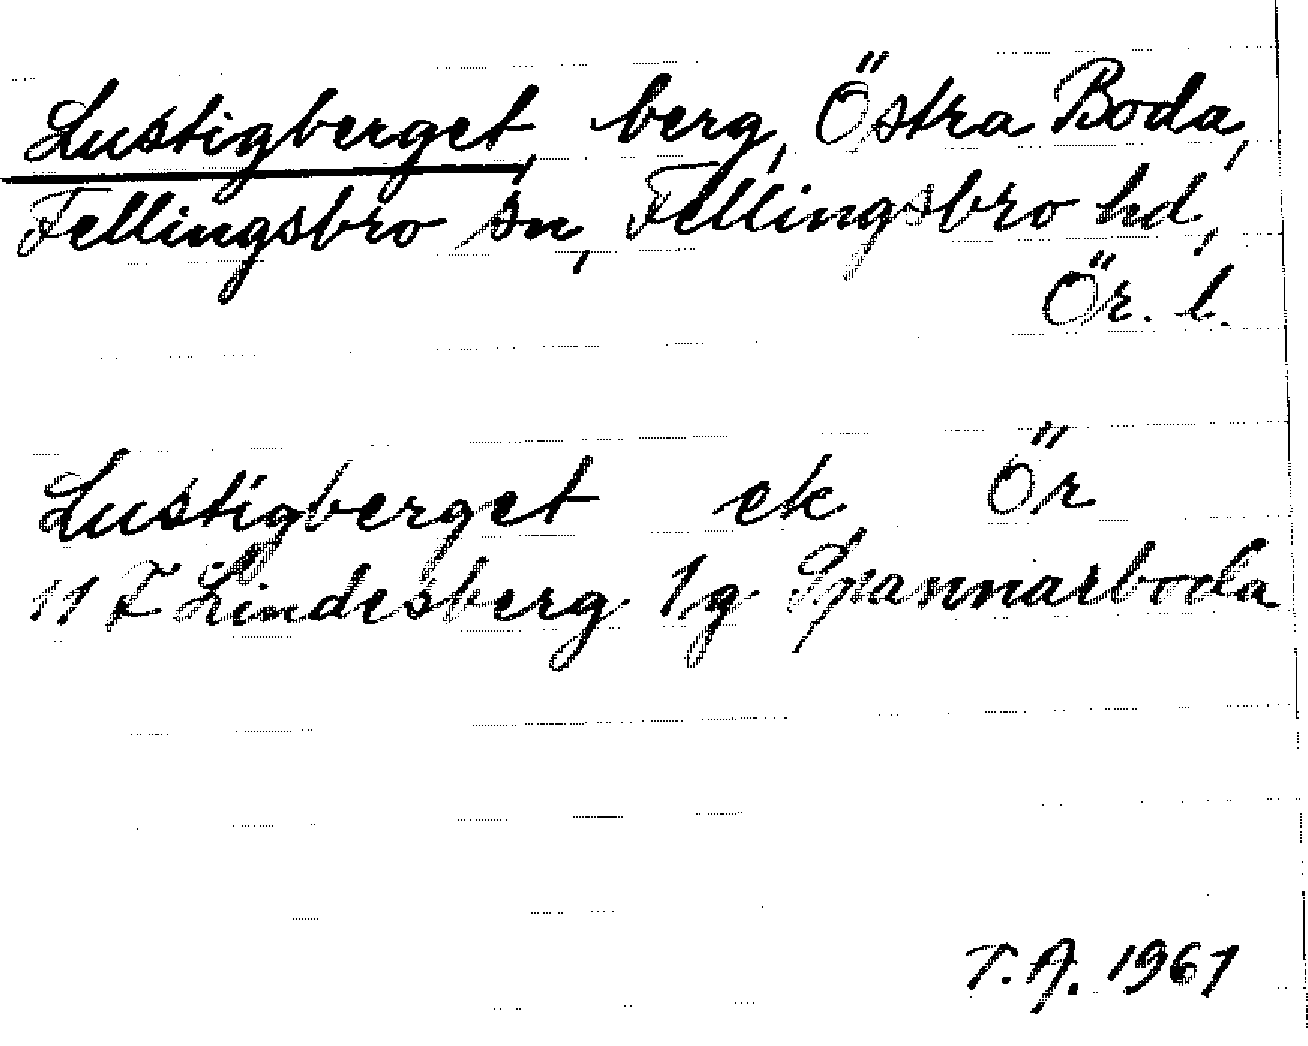 Lustigberget, berg, Östra Boda,
Fellingsbro sn, Fellingsbro hd,
Ör. l.
Lustigberget ek Ör
11 F Lindesberg 1g Spannarboda
T.A. 1961